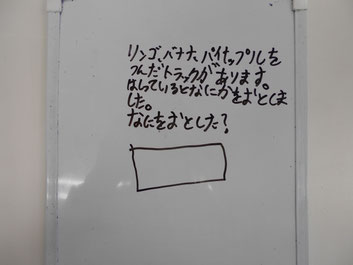 リンゴ、バナナ、パイナップルを
つんだトラックが あります。
はしっているとなにかをおとしま
した。
なにをおとした?